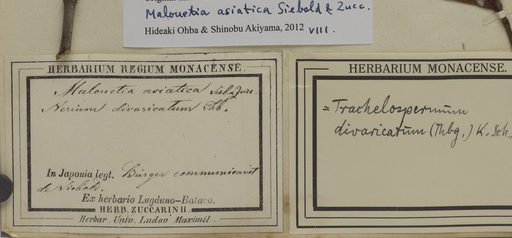 Malouetia asiatica Siebold & Zucc.
Hideaki Ohba & Shinobu Akiyama, 2012 VIII.
HERBARIUM REGIUM MONACENSE.
Malouetia asiatica Sieb. & Zucc.
Nerium divaricatum Thb.
In Japonia legt. Bürger communicavit
de Siebold.
Ex herbario Lugduno-Batavo.
HERB. ZUCCARINII.
Herbar. Univ. Ludov. Maximil.
HERBARIUM MONACENSE.
= Trachelospermum
divaricatum (Thbg.) K. Sch.